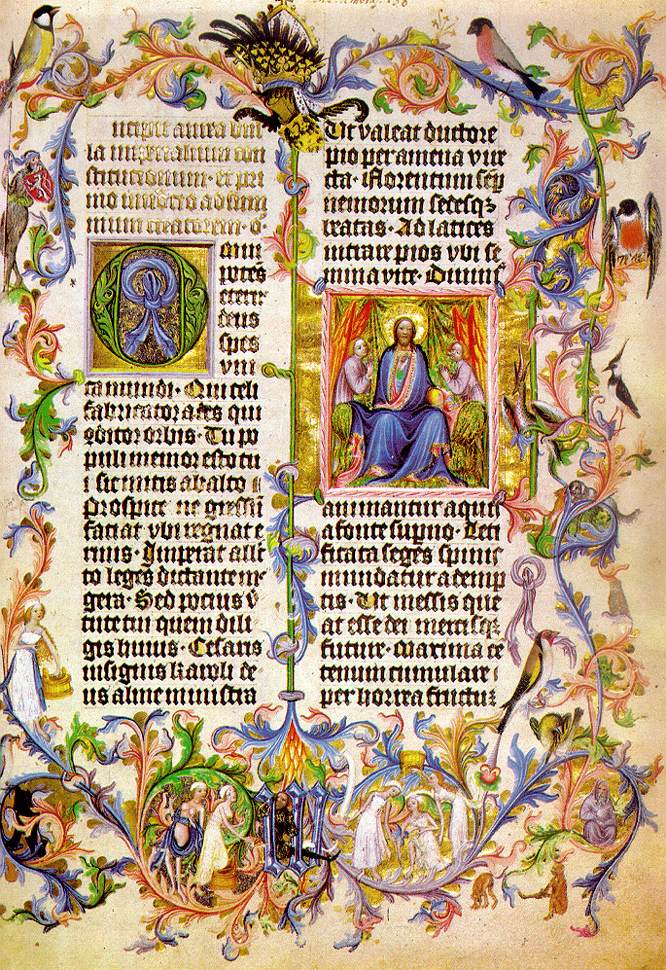 incipit aurea bul
la imperialium con
stitucionum · et pri
mo invocacio ad sum
mum creatorem · O
mni
potens
eterne
deus
spes
vni
ca mundi · Qui celi
fabricator ades qui
9ditor orbis · Tu po
puli memor esto tu
i sic mitis ab alto
Prospice ne gressū
faciat vbi regnat e
rinis · Imperat alle
to leges dictante m
gera · Sed pocius v̄
tute tui quem dili
gis huius · Cesaris
insignis karoli de
us alme ministra
Ut valeat ductore
pio per amena vire
ta · Florentum sep
nemorum sedesqꝫ
beatas · Ad latices
intrare pios vbi se
mina vite · Diuinis
animantur aquis
a fonte supno · Leti
ficata seges spinis
mundatur ademp
tis · Ut messis que
at esse dei mercisqꝫ
future · Maxima ce
tenum cumulare
per horrea fructum